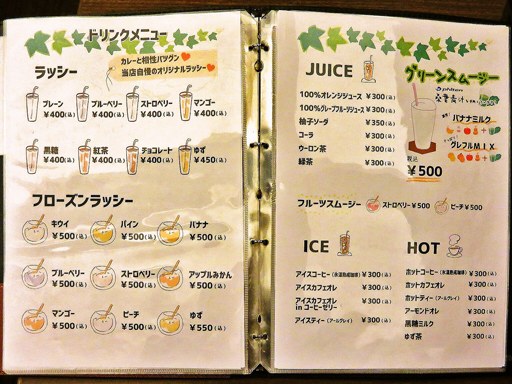 ドリンクメニュー
カレーと相性バツグン
当店自慢のオリジナルラッシー
ラッシー
プレーン ¥400(込)
ブルーベリー ¥400(込)
ストロベリー ¥400(込)
マンゴー ¥400(込)
黒糖 ¥400(込)
紅茶 ¥400(込)
チョコレート ¥400(込)
ゆず ¥450(込)
フローズンラッシー
キウイ ¥500(込)
パイン ¥500(込)
バナナ ¥500(込)
ブルーベリー ¥500(込)
ストロベリー ¥500(込)
アップルみかん ¥500(込)
マンゴー ¥500(込)
ピーチ ¥500(込)
ゆず ¥550(込)
JUICE
100%オレンジジュース ¥300(込)
100%グレープフルーツジュース ¥300(込)
柚子ソーダ ¥350(込)
コーラ ¥300(込)
ウーロン茶 ¥300(込)
緑茶 ¥300(込)
グリーンスムージー
バナナミルク
グレフルMIX
税込
¥500
フルーツスムージー
ストロベリー ¥500(込)
ピーチ ¥500(込)
ICE
アイスコーヒー(氷温熟成珈琲) ¥300(込)
アイスカフェオレ ¥300(込)
アイスカフェオレ
inコーヒーゼリー ¥300(込)
アイスティー(アールグレイ) ¥300(込)
HOT
ホットコーヒー(氷温熟成珈琲) ¥300(込)
ホットカフェオレ ¥300(込)
ホットティー(アールグレイ) ¥300(込)
アーモンドオレ ¥300(込)
黒糖ミルク ¥300(込)
ゆず茶 ¥300(込)